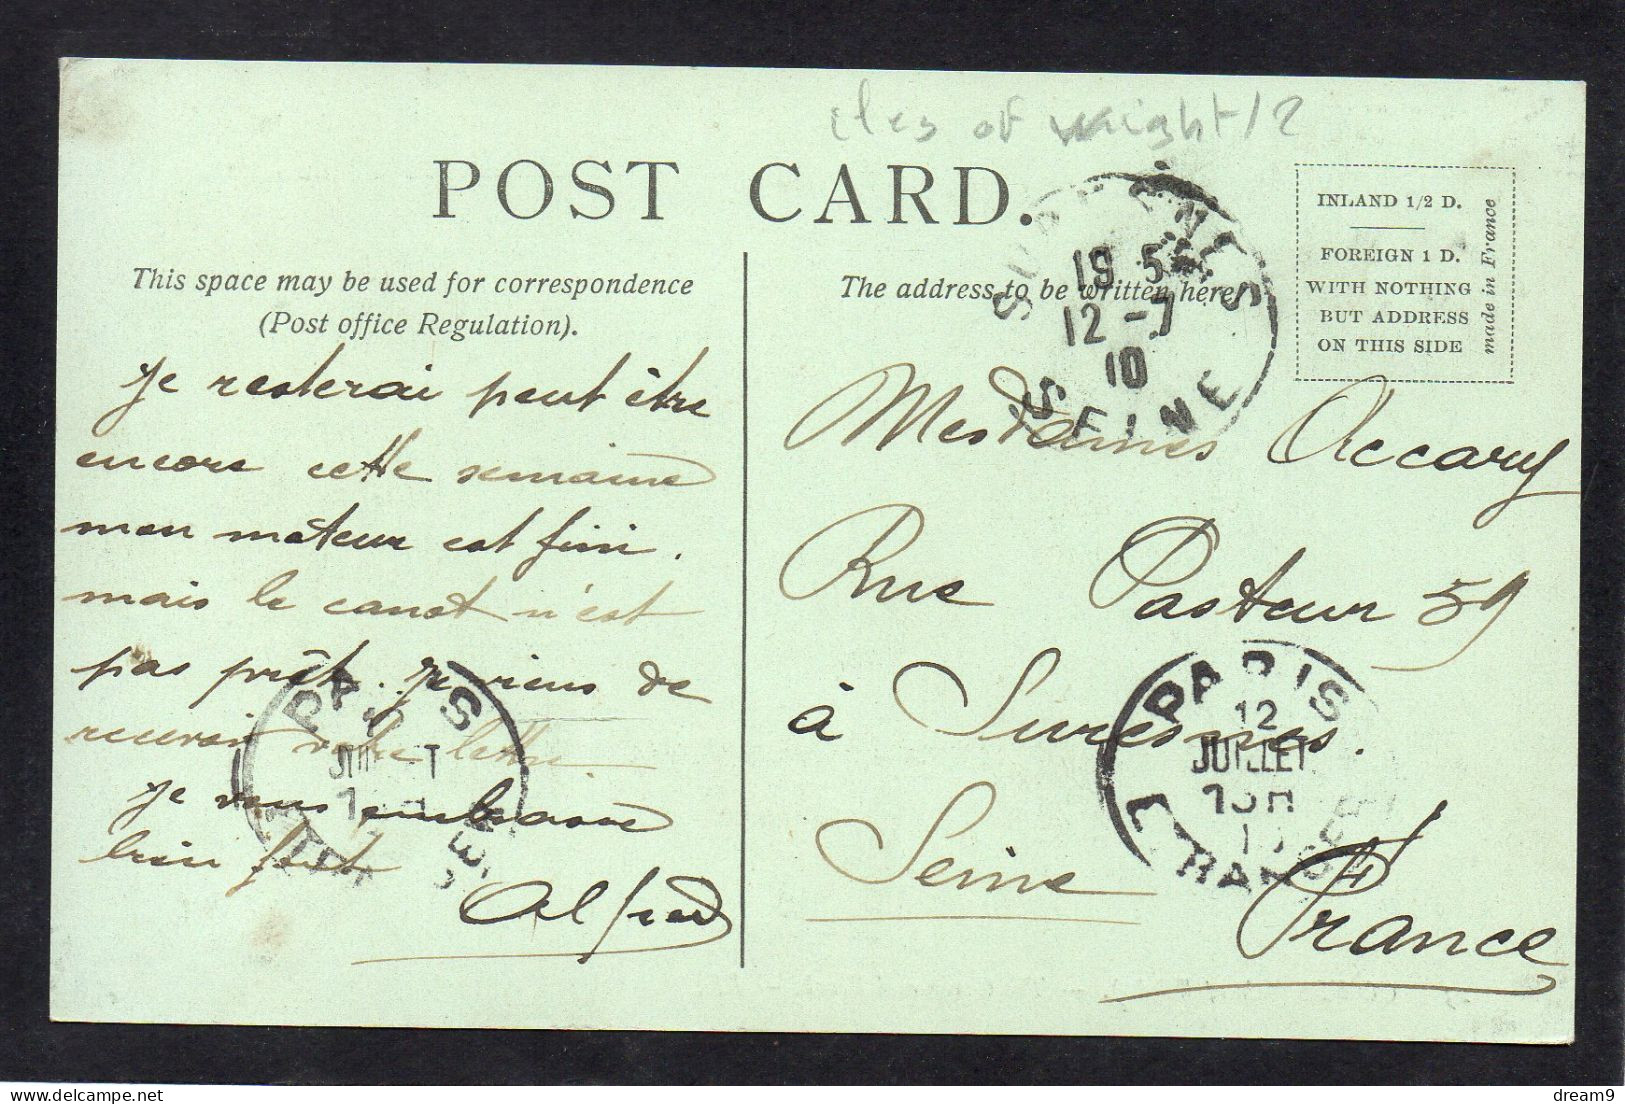 iles of waight/2
POST CARD.
This space may be used for correspondence
(Post office Regulation).
The address to be written here
INLAND 1/2 D.
FOREIGN 1 D.
WITH NOTHING
BUT ADDRESS
ON THIS SIDE
made in France
SURESNES
19 5
12 - 7
10
SEINE
Je resterai peut être
encore cette semaine
mon moteur est fini.
mais le canot n'est
pas prêt. je viens de
recevoir votre lettre.
je vous embrasse
bien fort
Alfred
Mesdames Accary
Rue Pasteur 59
à Suresnes.
Seine
France
PARIS
12
JUILLET
ETRANGER
PARIS
JUILLET